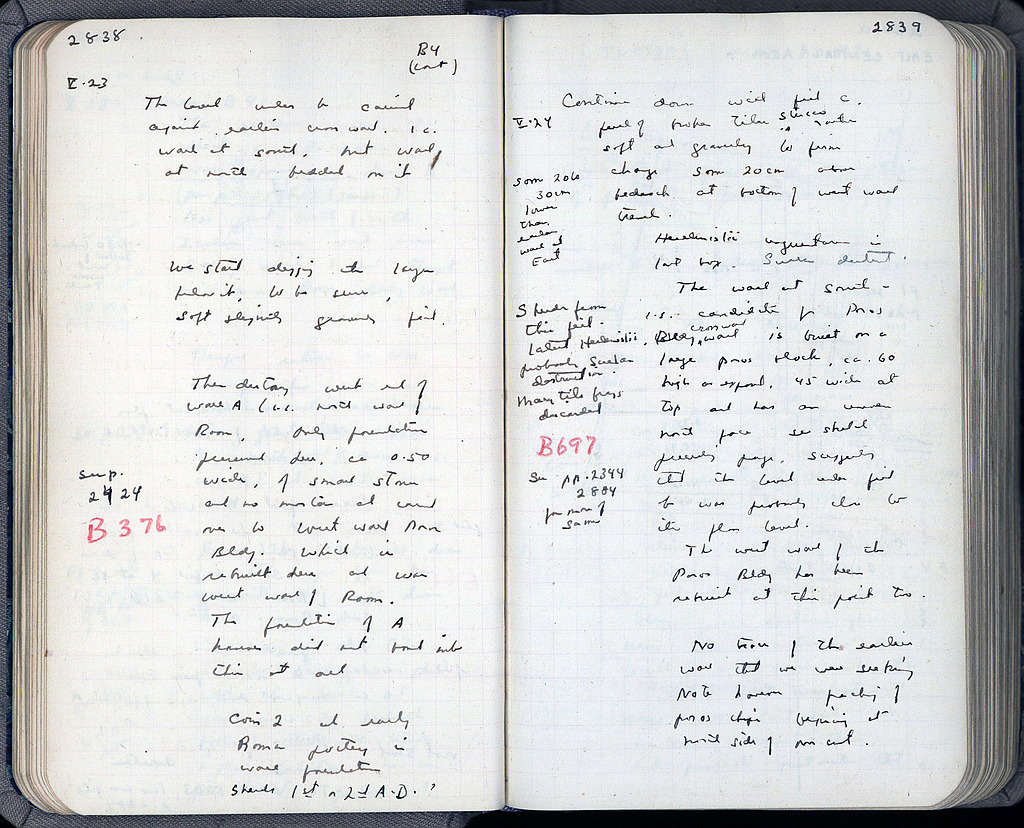 2838
B4
(cont)
V.23
The level under to
against earlier crosswall. i.e.
wall at south, but wall
at north bedded on it
We start digging the large
to be sure,
soft slightly gravelly fill.
Then destroy west end of
wall A (i.e. north wall of
Room, only foundation
preserved here, ca 0.50
wide, of small stones
and no mortar and
over to west wall Poros
Bldg. which is
rebuilt here as
west wall of Room.
The foundation of A
however did not bond into
this at all
see p.
2424
B 376
Coin 2 and early
Roman pottery in
wall foundation
sherds 1st or 2nd A.D. ?
2839
Continue down west fill c.
V.24
full of broken tiles stucco
soft and gravelly to firm
change some 20 cm above
bedrock at bottom of west wall
trench.
some 20 to
30 cm
lower
than
earlier
wall at
East
Hellenistic unguentarium in
last
The wall at south -
i.e. candidate for Poros
Bldg, crosswall is built on a
large poros block, ca. 60
high as exposed, 45 wide at
top and has an uneven
north face see sketch
page, suggests
that the level under fill
c was probably also to
its floor level.
Sherds from
this fill.
latest Hellenistic,
probably Sullan
destruction.
Many tile frags
discarded
B697
See pp. 2344
2804
for more of
same
The west wall of the
Poros Bldg has been
rebuilt at this point too.
No trace of the earlier
wall that we were seeking
Note however packing of
poros chips beginning at
north side of our cut.